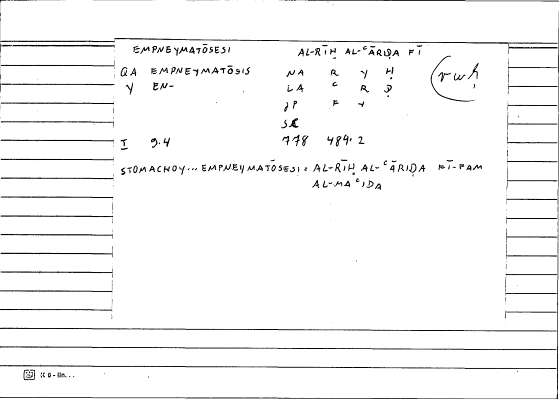 EMPNEYMATŌSESI AL-RĪḤ AL-ʿĀRIḌA FĪ
QA EMPNEYMATŌSIS NA R Y Ḥ rwḥ
Y EN- LA ʿ R Ḍ
JP F Y
SE
I 9.4 778 484.2
STOMACHOY... EMPNEYMATŌSESI = AL-RĪḤ AL-ʿĀRIḌA FĪ-FAM
AL-MAʿIDA